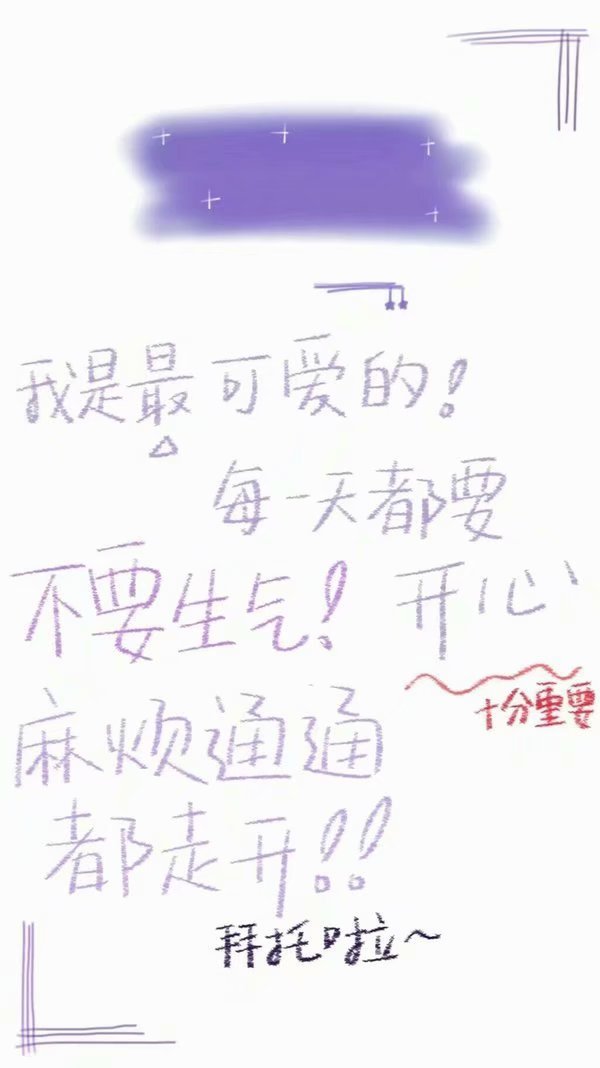 我是最可爱的！
每一天都要
开心
十分重要
不要生气！
麻烦通通
都走开！！
拜托啦～